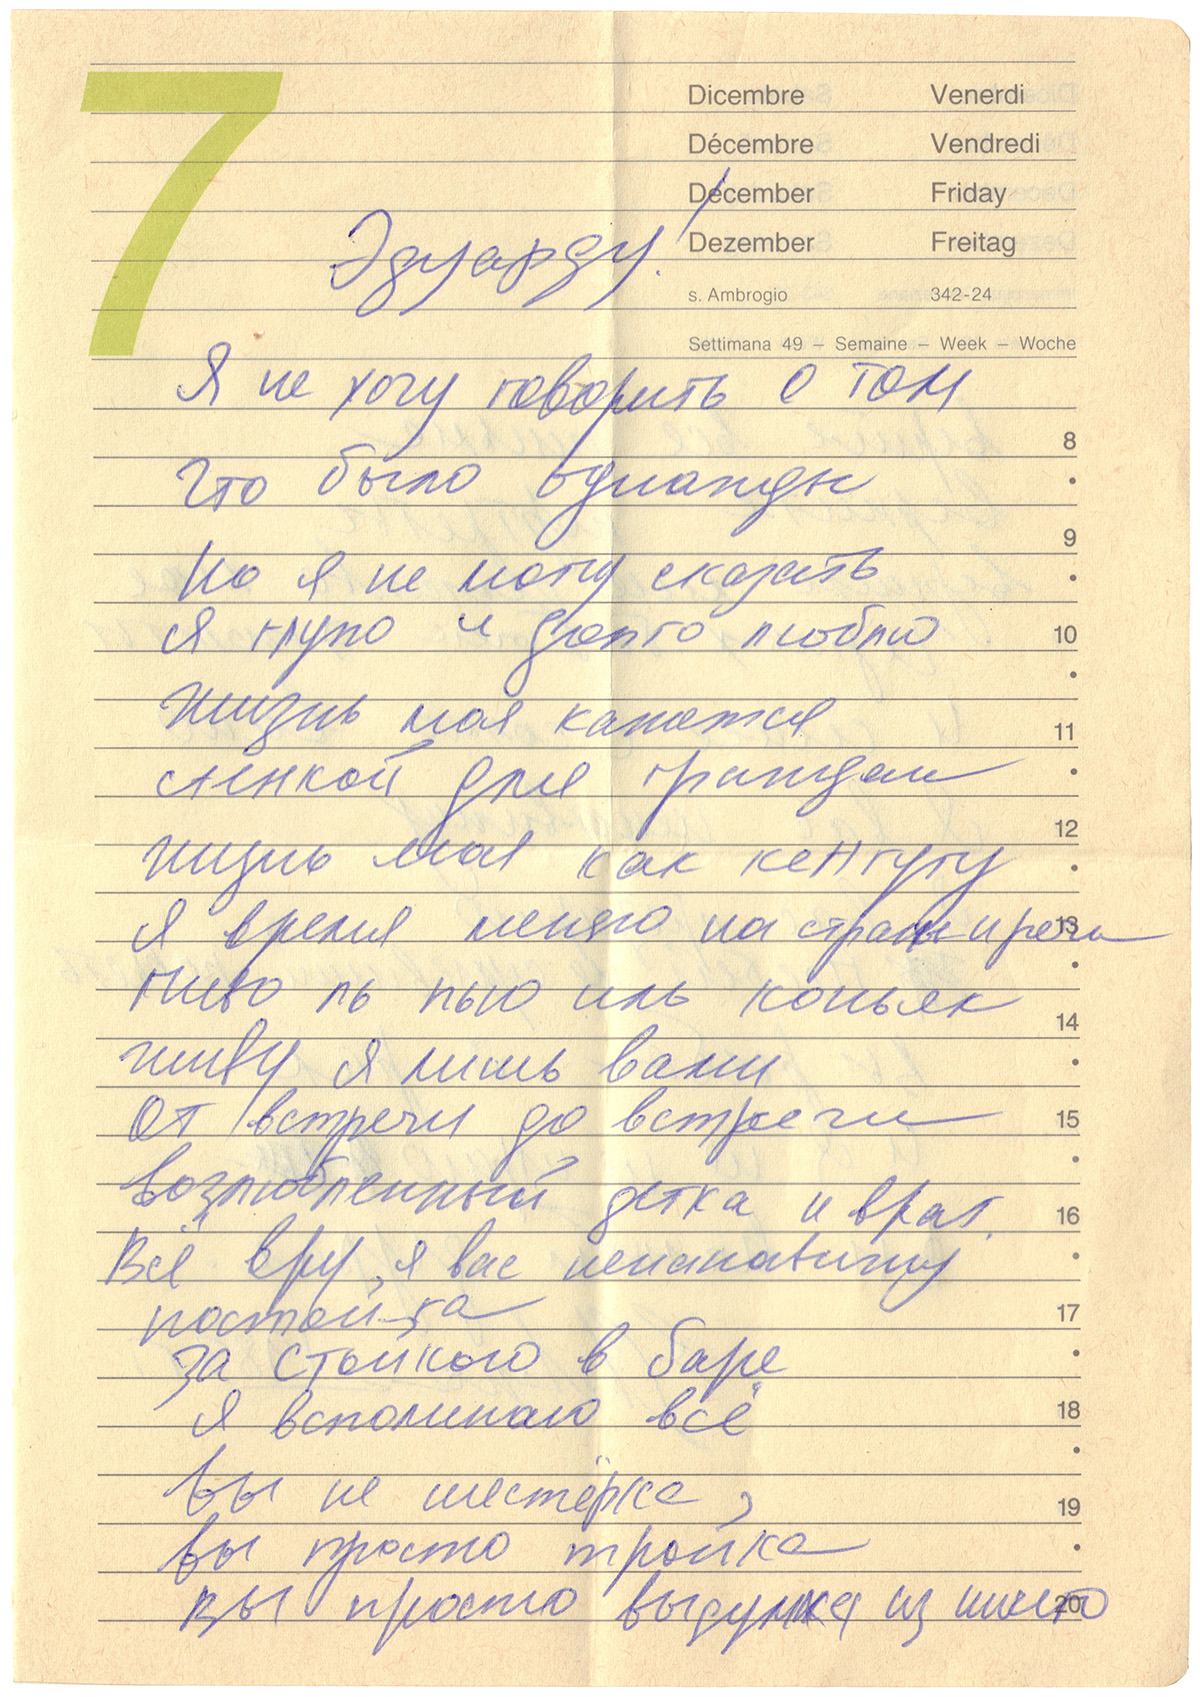 7
Dicembre Venerdi
Décembre Vendredi
December Friday
Dezember Freitag
s. Ambrogio 342-24
Settimana 49 – Semaine – Week – Woche
Эдуарду!
Я не хочу говорить о том
8
Что было однажды
9
Но я не могу сказать
Я глупо и долго люблю
10
Жизнь моя кажется
11
стенкой для граждан
12
Жизнь моя как кенгуру
Я время меняю на страны и речи
13
Пиво ль пью иль коньяк
14
живу я лишь вами
От встречи до встречи
15
возлюбленный детка и враг.
16
Всё вру, я вас ненавижу
постойка
17
за стойкою в баре
Я вспоминаю всё
18
Вы не шестёрка,
19
вы просто тройка
Вы просто выдумка из ничего
20